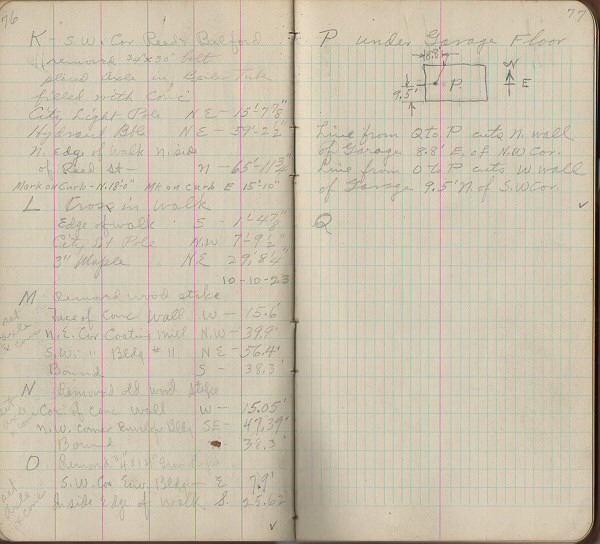 76
K - S.W. Cor Reed & Bulford
removed 24"x 30" bolt
placed Axle in Boiler Tube
filled with Conc
City Light Pole N E - 15'-7 7/8"
Hydrant Bib N E - 59'-2 1/2"
N. edge of walk N. side
of Reed St - N - 65'-11 3/4"
Mark on Curb - N. 18'-0" Mk on Curb E 15'-10"
L Cross in walk
Edge of walk S - 1'-4 7/8"
City Lt Pole N.W 7'-9 1/2"
3" Maple N.E 29'-8 1/4"
10-10-23
M Removed wood stake
Face of Conc Wall W - 15.6'
N.E. Cor Coating Mill N.W - 39.9'
S.W. " Bldg # 11 N E - 56.4'
Bound S - 38.3
set axle & conc
N Removed old wood stake
Cor of Conc Wall W - 15.05'
N.W. Corner Envelope Bldg SE - 47.39'
Bound 38.3'
O Removed
S.W. Cor Env. Bldg - E 7.9'
Inside Edge of Walk S. 25.62'
set axle & conc
77
P under Garage Floor
8.8'
N
P.
E
9.5'
Line from Q to P cuts N. wall
of Garage 8.8' E. of N.W Cor.
Line from O to P cuts W wall
of Garage 9.5' N. of S.W Cor.
Q